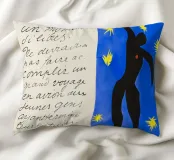 un mom
di libes.
Ne devrait-on
pas faire ac
complir un
grand voyage
en avion aux
jeunes gens